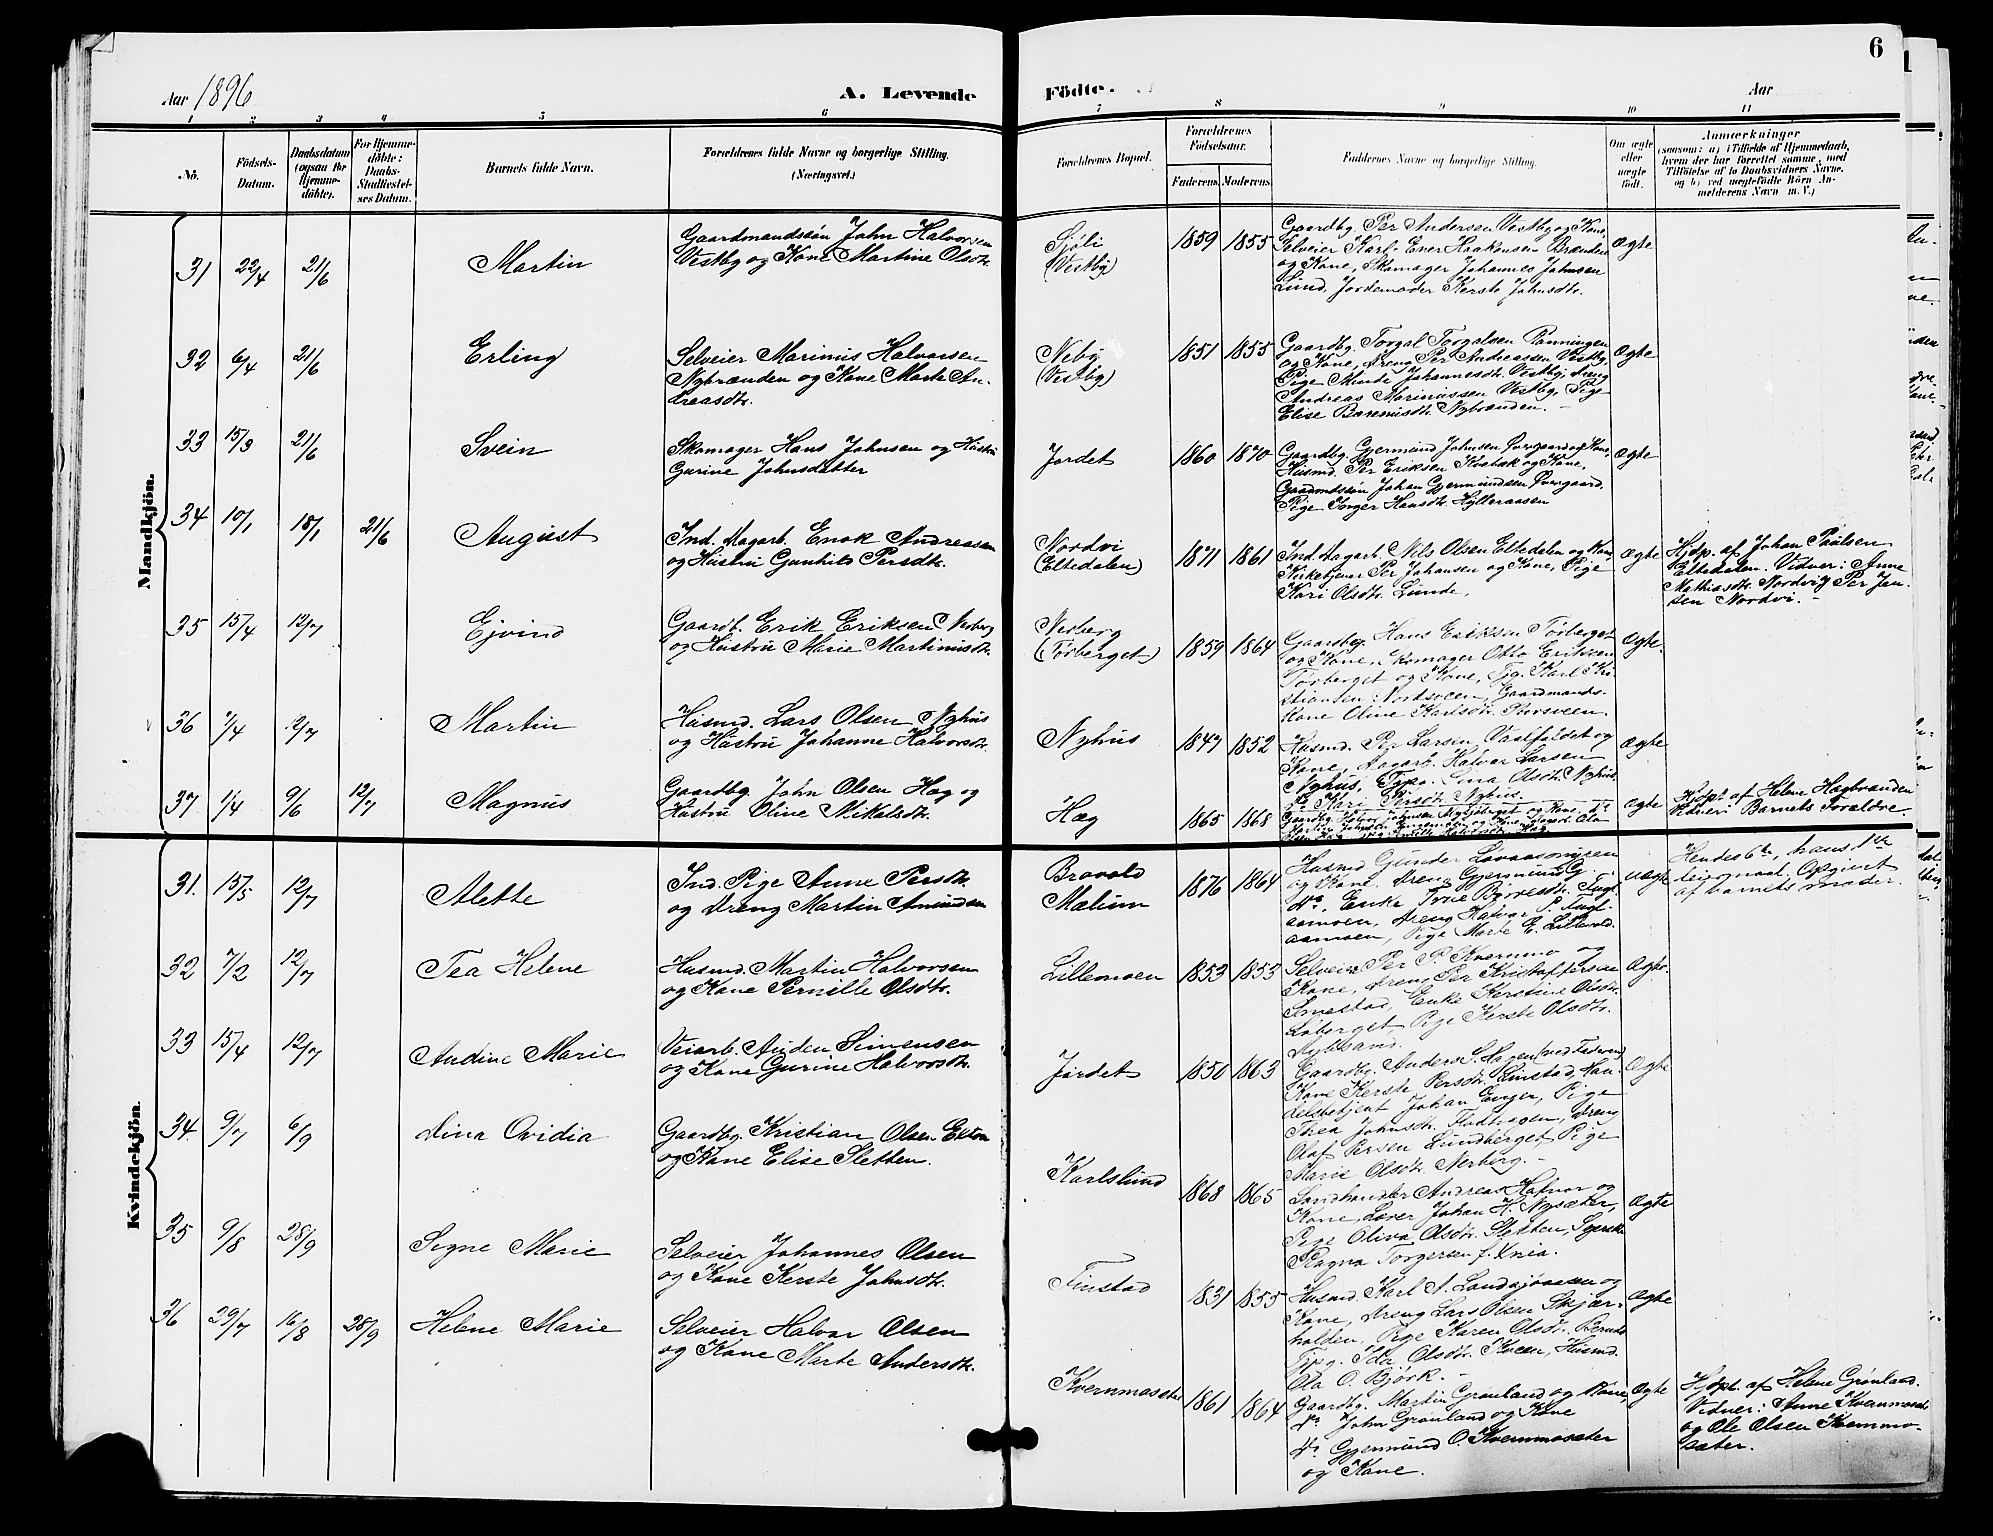 6
Aar 1896
A. Levende
Födte.
Aar
1 2 3 4 5 6 7 8 9 10 11
Nö.
Födsels-
Datum.
Daabsdatum
(ogsaa for
Hjemme-
döbte).
For Hjemme-
döbte:
Daabs-
Stadfæstel-
ses Datum.
Barnets fulde Navn.
Forældrenes fulde Navne og borgerlige Stilling.
(Næringsvei.)
Forældrenes Bopæl.
Forældrenes
Födselsaar.
Faderens. Moderens.
Faddernes Navne og borgerlige Stilling.
Om ægte
eller
uægte
födt.
Anmærkninger
(saasom: a) i Tilfælde af Hjemmedaab,
hvem der har forrettet samme, med
Tilföielse af to Daabsvidners Navne.
og b) ved uægtefödte Börn An-
melderens Navn m. V.)
Mandkjön.
31 22/4 21/6 Martin
Gaardmandssön John Halvorsen
Vestby og Kone Martine Olsdtr.
Sjöli
(Vestby)
1859 1855
Gaardbg. Per Andersen Vestby og Kone,
Selveier Karl Ener Haakensen Brænden
og Kone, Skomager Johannes Johnsen
Lund, Jordemoder Kerste Johnsdtr.
Ægte
32 6/4 21/6 Erling
Selveier Marinius Halvorsen
Nybrænden og Kone Marte An-
dreasdtr.
Neby
(Vestby)
1851 1855
Gaardbg. Torgal Torgalsen Rönningen
og Kone, Dreng Per Andreassen Vestby,
Pige Minda Johannesdtr. Vestby, Dreng
Andreas Mariniussen Vestby, Pige
Elise Nybrænden. -
Ægte
33 15/3 21/6 Svein
Skomager Hans Johnsen og Hustru
Gurine Johnsdatter
Jordet
1860 1870
Gaardbg. Gjermund Johnsen Övregaard og Kone,
Husmd. Per Eriksen Kvebæk og Kone,
Gaardmdssön Johan Gjermundsen Övregaard,
Pige Torger Hansdtr. Hylleraasen
Ægte
34 10/1 18/1 21/6 August
Ind. Dagarb. Enok Andreasen
og Hustru Gunhild Persdtr.
Nordvi
(Eltedalen)
1871 1861
Ind. Dagarb. Nils Olsen Eltedalen og Kone
Kirketjener Per Johansen og Kone, Pige
Kari Olsdtr. Lunde,
Ægte
Hjdp. af Johan Paulsen
Eltedalen. Vidner: Anne
Mathiasdtr. Nordvi & Per Jan-
sen Nordvi. -
35 15/4 12/7 Ejvind
Gaardb. Erik Eriksen Nerberg
og Hustru Marie Martinusdtr.
Nerberg
(Törberget)
1859 1864
Gaardbg. Hans Eriksen Törberget
og Kone, Skomager Otto Eriksen
Törberget og Kone, Tjg. Karl Kri-
stiansen Nordsveen, Gaardmands-
Kone Oline Karlsdtr. Storsveen.
Ægte.
36 /4 2/7 Martin
Husmd. Lars Olsen Nyhus
og Hustru Johanne Halvorsdtr.
Nyhus
1847 1852
Husmd. Per Larsen Vaalfaldet og
Kone, Dagarb. Halvor Larsen
Nyhus, Lina Olsdtr. Nyhus
do Kari Persdtr. Nyhus.
Ægte
37 1/4 9/6 12/7 Magnus
Gaardbg. John Olsen Hæg og
Hustru Oline Mikalsdtr.
Hæg
1865 1868
Gaardbg. Halvor Johnsen og Kone, do
Ægte
Hjdpt. af Helene Hagbrænden
Vidner: Barnets Forældre.
Kvindekjön.
31. 15/5 12/7 Alette
Ind. Pige Anne Persdtr.
og Dreng Martin Amundsen
Bravold
Mælum
1876 1864
Husmd. Gunder Lövaasmyren
og Kone. Dreng Gjermund G.
do, Enke Börresdtr. Fugl-
aamoen, Dreng Halvor P. Fugl-
aamoen, Pige Marte E. Lillevold.
uægte
Hendes 6te, hans 1ste
leiermaal, Opgivet
af barnets moder.
32 7/2 12/7 Tea Helene
Husmd. Martin Halvorsen
og Kone Pernille Olsdtr.
Lillemoen
1853 1853
Selveier Per P. Kvernmo og
Kone, Dreng Per Kristoffersen
Smestad, Enke Kerstine Olsdtr.
Löberget, Pige Kerste Olsdtr.
Nylsand.
Ægte.
33 15/4 12/7 Audine Marie
Veiarb. Auden Simensen
og Kone Gurine Halvorsdtr.
Jordet
1850 1863
Gaardbg. Anders S. Hagen (ved Faderen)
Kone Kerste Persdtr. Linstad, Han-
delsbetjent Johan Enger, Pige
Thea Johnsdtr. Flathagen, Dreng
Olaf Persen Lundberget, Pige
Marie Olsdtr. Nerberg. -
Ægte
34. 9/7 6/9 Dina Ovidia
Gaardbg. Kristian Olsen Elton
og Kone Elise Sletten.
Karlslund
1868 1865
Landhandler Andreas Hafnor og
Kone, Lærer Johan H. Nysæter,
Pige Oliva Olsdtr. Sletten, Syerske
Ragna Torgersen f. Xnia.
Ægte
35 9/8 28/9 Signe Marie
Selveier Johannes Olsen
og Kone Kerste Johnsdtr.
Tinstad
1831 1855
Husmd. Karl A. Landsjöaasen og
Kone, Dreng Lars Olsen Skjær-
holden, Pige Karen Olsdtr.
Tjpg. Ida Olsdtr. Kveen, Husmd.
Ola O. Björk. -
Ægte
36 29/7 16/8 28/9 Helene Marie
Selveier Halvor Olsen
og Kone Marte Andersdtr.
Kvernmosæter
1861 1864
Gaardbg. Martin Grönland og Kone,
do John Grönland og Kone
do Gjermund O. Kvernmosæter
og Kone.
Ægte
Hjdpt. af Helene Grönland.
Vidner: Anne Kvernmosæter
og Ole Olsen Kvernmo-
sæter.